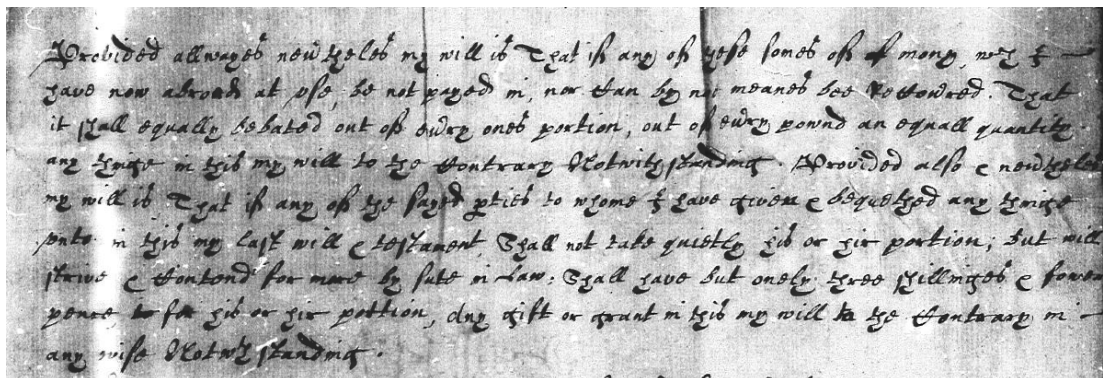 Provided allwayes nevetheles my will is That if any of these somes of mony, wch I
have now abroade at use, be not payed in, nor Can by not meanes bee Recovered. That
it shall equally be bated out of every ones portion, out of every pownd an equall quantity
any thinge in this my will to the Contrary Notwithstanding. Provided also & nevetheles
my will is That if any of the sayed pties to whome I have given & bequethed any thinge
unto in this my last will & testament Shall not take quietly his or hir portion; but will
strive & Contend for more by sute in Law: Shall have but onely three shillinges & fower
pence for his or hir portion, Any gift or grant in this my will to the Contrary in
any wise Notwth standing.